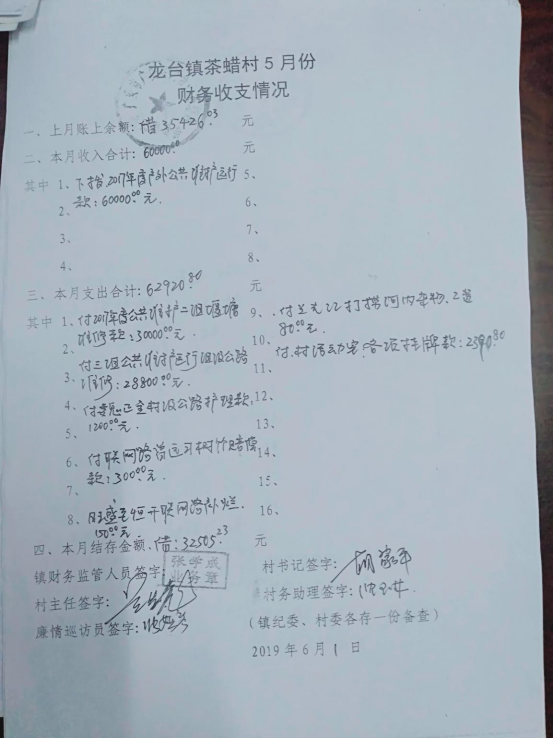 龙台镇茶蜡村5月份
财务收支情况
一、上月账上余额:借35426.03 元
二、本月收入合计:60000.00 元
其中 1、下拨2017年度户外公共维护运行 5、
2、款:60000.00元. 6、
3、 7、
4、 8、
三、本月支出合计:62920.80 元
其中 1、付2017年度公共维护二组堰塘 9、付 打捞河内杂物工资
2、维修款:30000.00元. 80.00元.
3、付三组公共维护运行组级公路 10、付村活动室各项挂牌款:2390.80
维修:28800.00元 11、
4、付 全村级公路护理款, 12、
5、1200.00元. 13、
6、付联网路 赔偿 14、
7、款:300.00元. 15、
8、 联网路 16、
150.00元.
四、本月结存金额.借:32505.23 元
镇财务监管人员签字: 张学成 业务章 村书记签字:
村主任签字: 村务助理签字:
廉情巡访员签字: (镇纪委、村委各存一份备查)
2019年6月1日